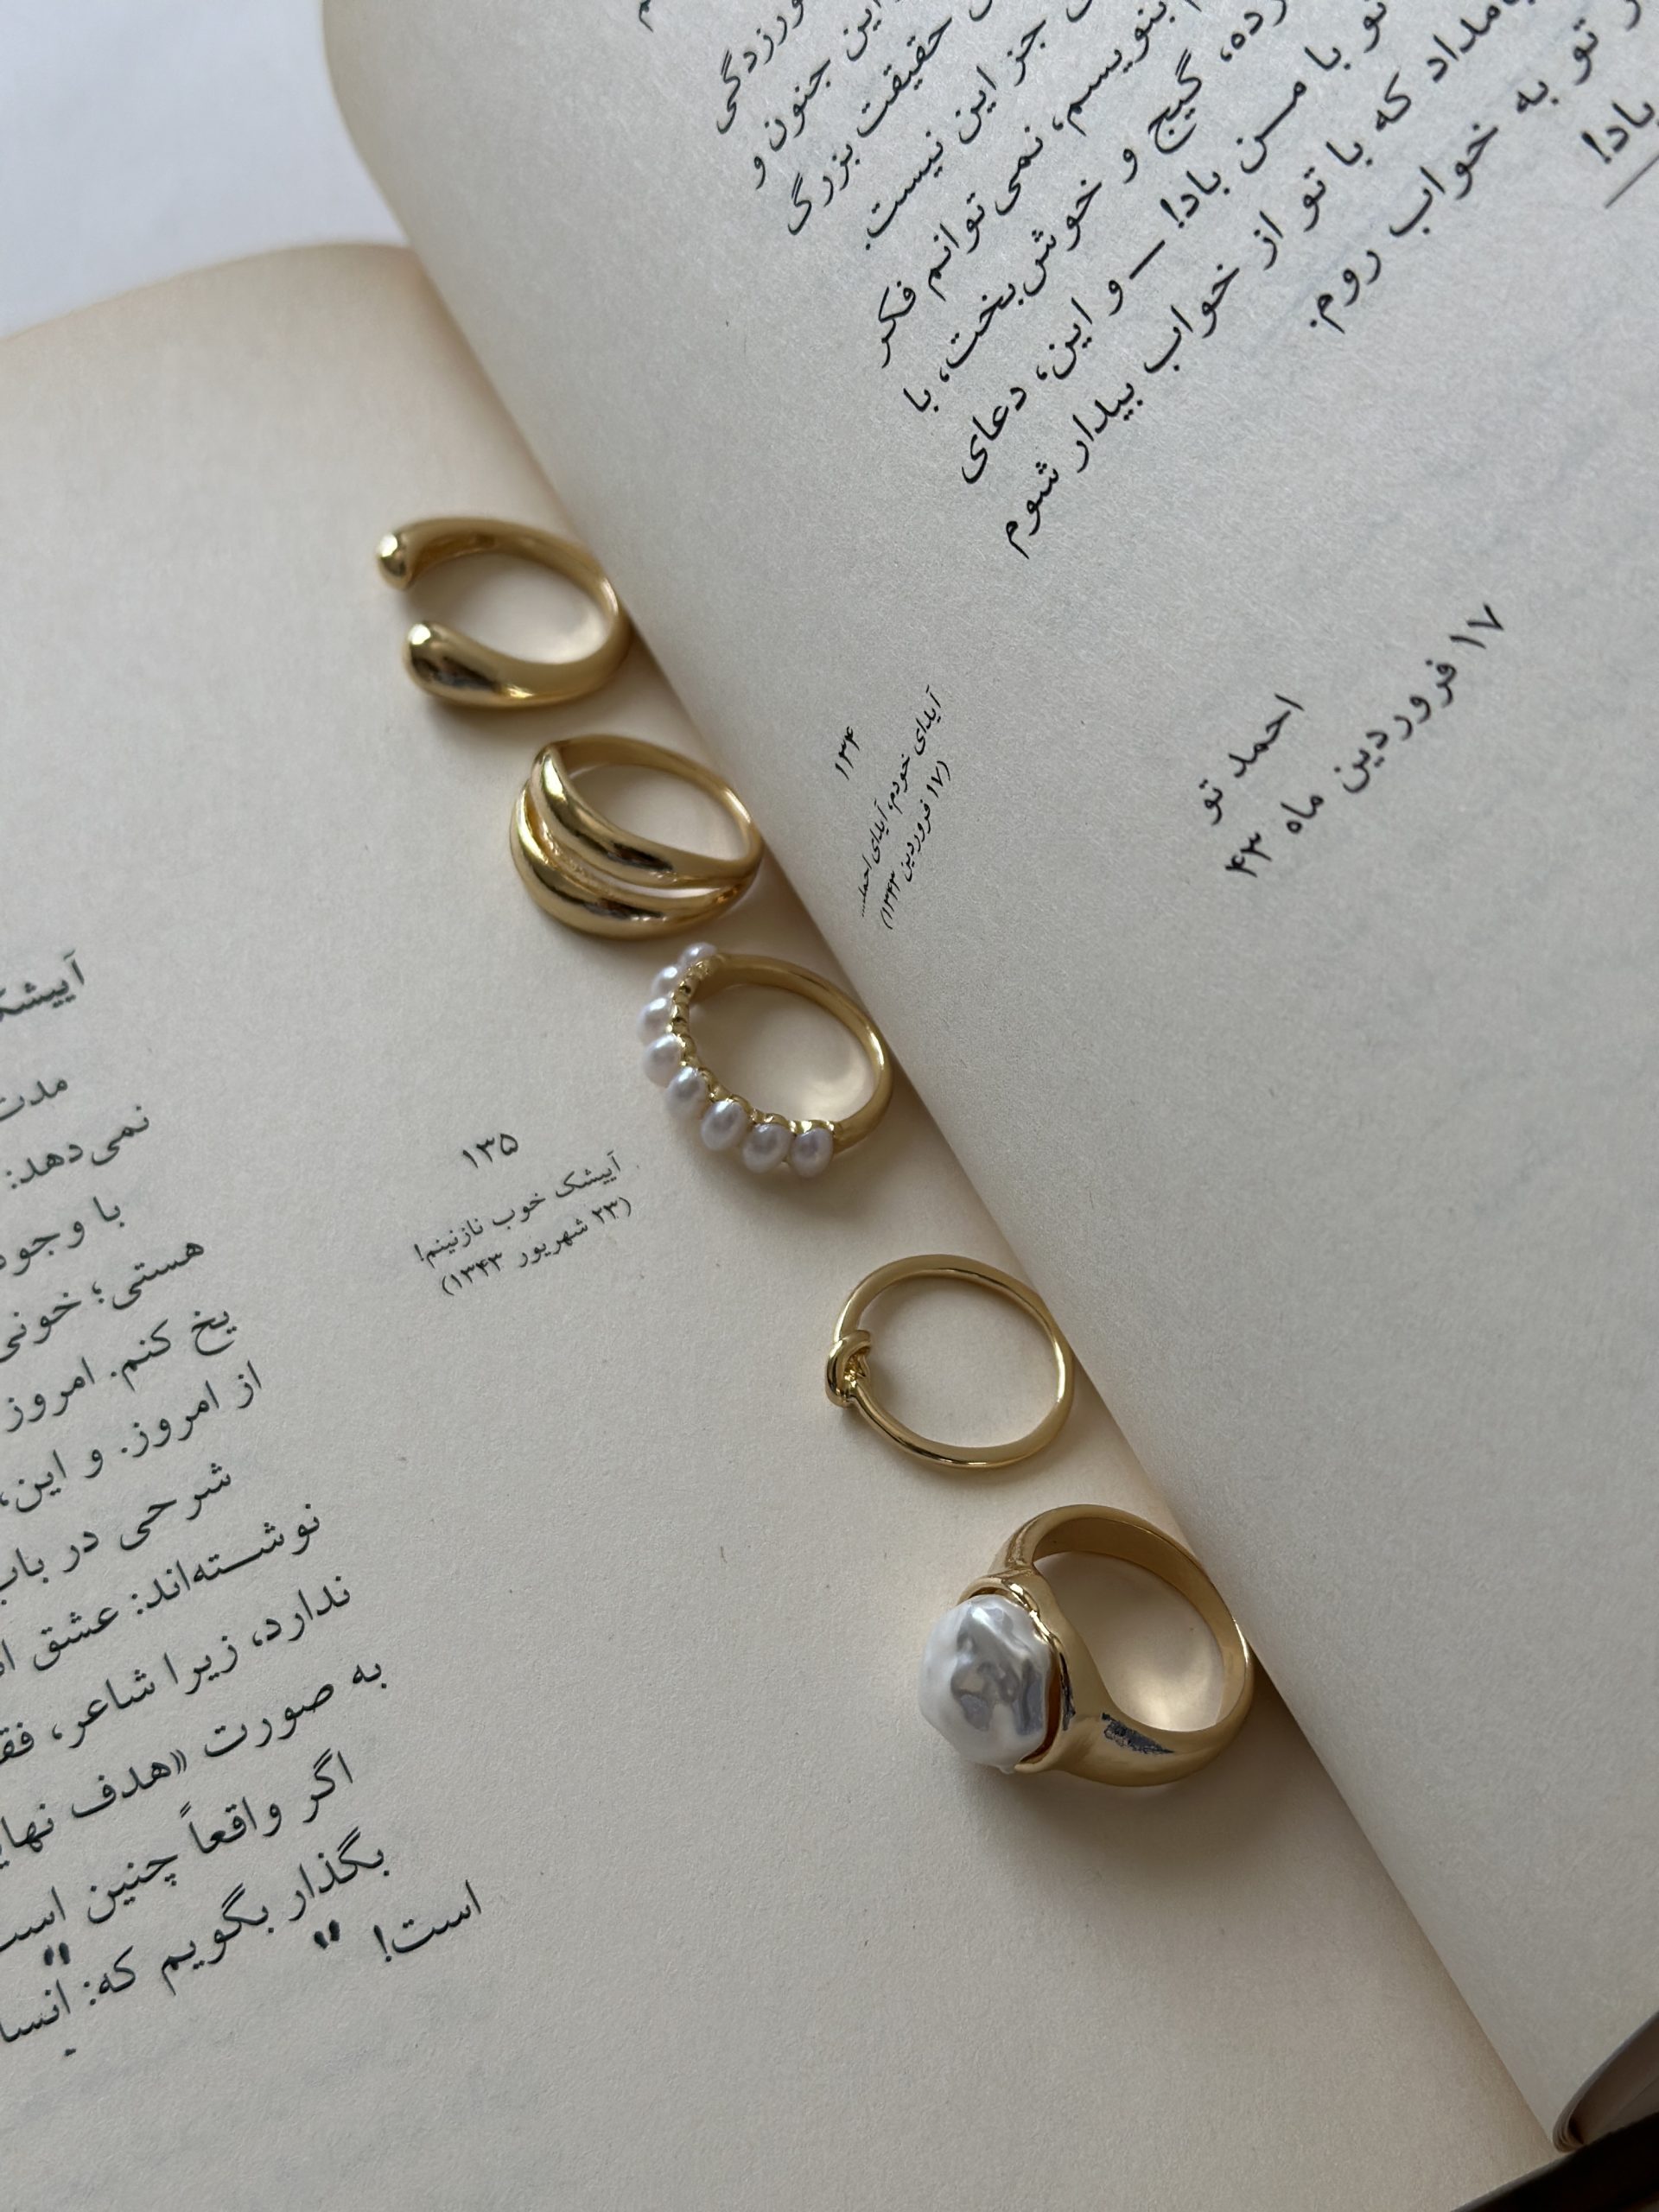 ورزدگی
این جنون و
حقیقت بزرگ
جز این نیست.
بنویسم، نمی‌توانم فکر
گیج و خوش‌بخت، با
تو با من باد! — و این، دعای
بامداد که با تو از خواب بیدار شوم
تو به خواب روم.
باد!
احمد تو
۱۷ فروردین ماه ۴۳
۱۳۴
آیدای خودم، آیدای احمد...
(۱۷ فروردین ۱۳۴۳)
آییشک
مدت
نمی‌دهد:
با وجود
هستی؛ خونی
یخ کنم. امروز
از امروز. و این،
شرحی در باب
نوشته‌اند: عشق
ندارد، زیرا شاعر،
به صورت «هدف نهایی
اگر واقعاً چنین است
بگذار بگویم که: "انسا
است!"
۱۳۵
آییشک خوب نازنینم!
(۲۳ شهریور ۱۳۴۳)